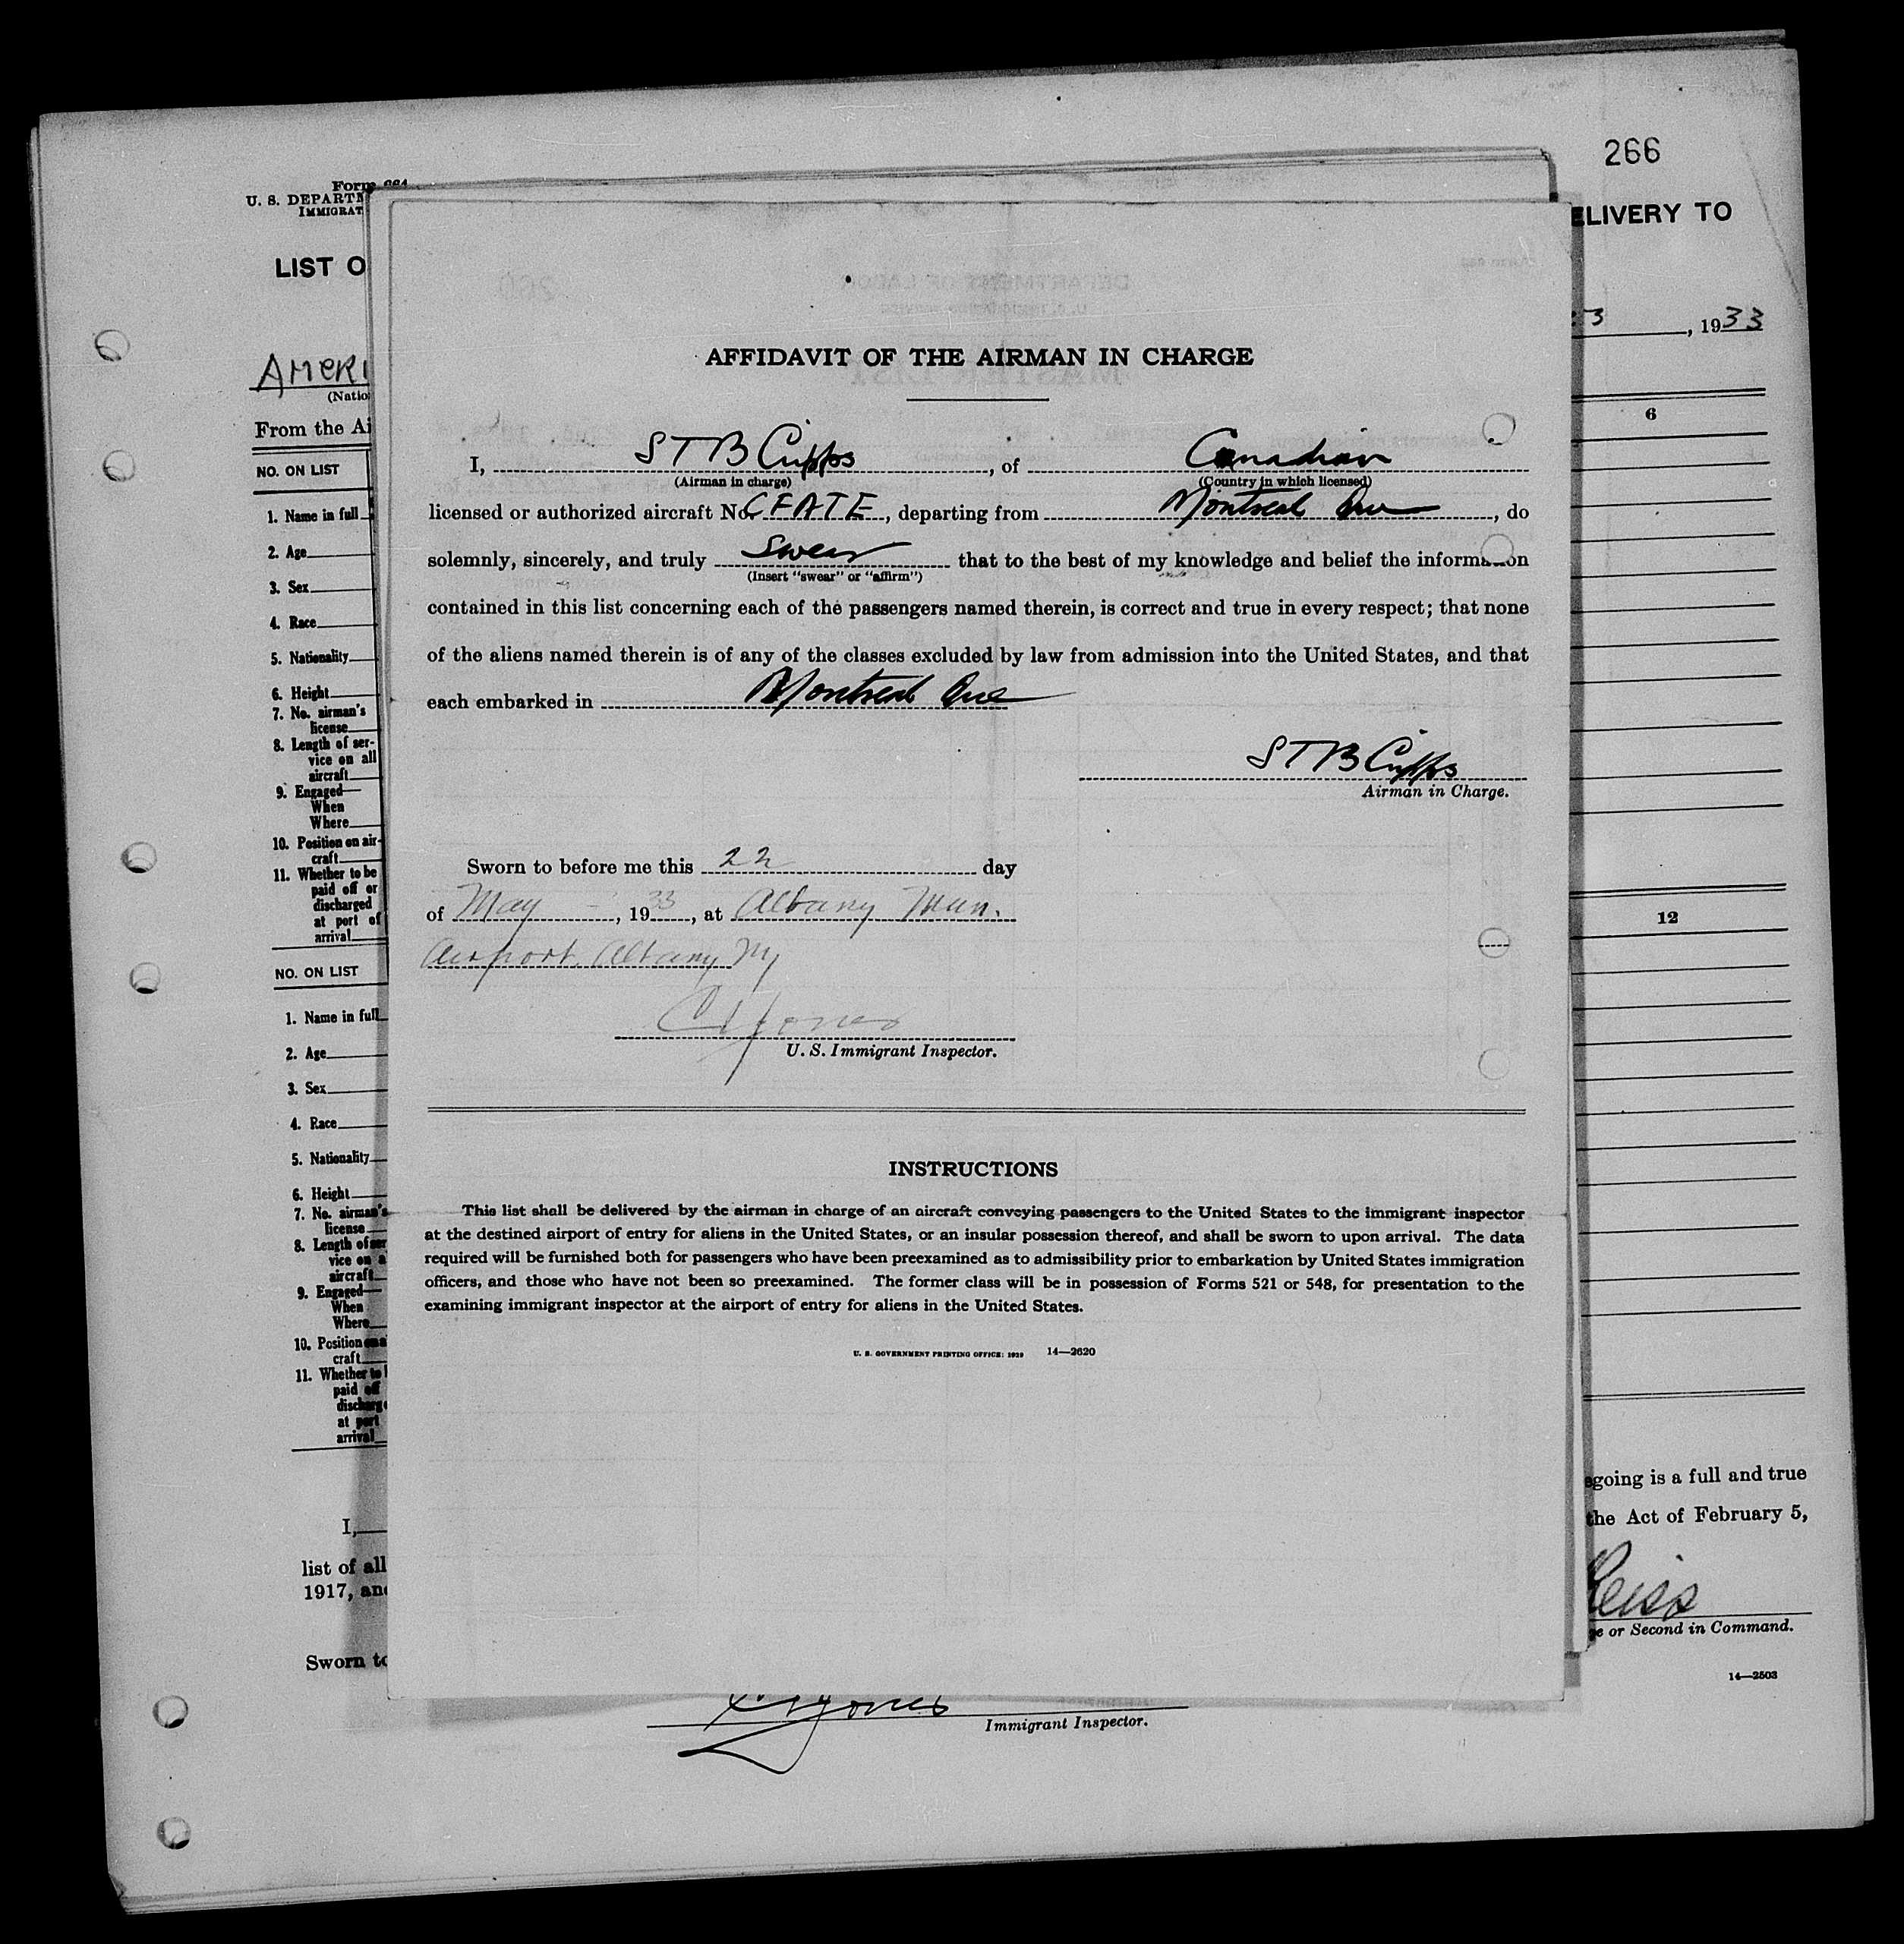 266
Form 661
U. S. DEPARTM
IMMIGRAT
ELIVERY TO
LIST O
3, 1933
AMERI
(Natio
From the Ai
NO. ON LIST
6
1. Name in full
2. Age
3. Sex
4. Race
5. Nationality
6. Height
7. No. airman's
license
8. Length of ser-
vice on all
aircraft
9. Engaged—
When
Where
10. Position on air-
craft
11. Whether to be
paid off or
discharged
at port of
arrival
NO. ON LIST
12
1. Name in full
2. Age
3. Sex
4. Race
5. Nationality
6. Height
7. No. airman's
license
8. Length of ser
vice on a
aircraft
9. Engaged—
When
Where
10. Position on a
craft
11. Whether to b
paid off
discharge
at port
arrival
I,
list of all
1917, and
Sworn to
AFFIDAVIT OF THE AIRMAN IN CHARGE
I, S T B Cripps, of Canadian
(Airman in charge) (Country in which licensed)
licensed or authorized aircraft No. CFATE, departing from Montreal Que, do
solemnly, sincerely, and truly Swear that to the best of my knowledge and belief the information
(Insert "swear" or "affirm")
contained in this list concerning each of the passengers named therein, is correct and true in every respect; that none
of the aliens named therein is of any of the classes excluded by law from admission into the United States, and that
each embarked in Montreal Que
S T B Cripps
Airman in Charge.
Sworn to before me this 22 day
of May, 1933, at Albany Mun.
Airport, Albany Ny
C H Jones
U. S. Immigrant Inspector.
INSTRUCTIONS
This list shall be delivered by the airman in charge of an aircraft conveying passengers to the United States to the immigrant inspector
at the destined airport of entry for aliens in the United States, or an insular possession thereof, and shall be sworn to upon arrival. The data
required will be furnished both for passengers who have been preexamined as to admissibility prior to embarkation by United States immigration
officers, and those who have not been so preexamined. The former class will be in possession of Forms 521 or 548, for presentation to the
examining immigrant inspector at the airport of entry for aliens in the United States.
U. S. GOVERNMENT PRINTING OFFICE: 1929 14—2620
egoing is a full and true
the Act of February 5,
Reiss
ge or Second in Command.
14—2503
Jones
Immigrant Inspector.